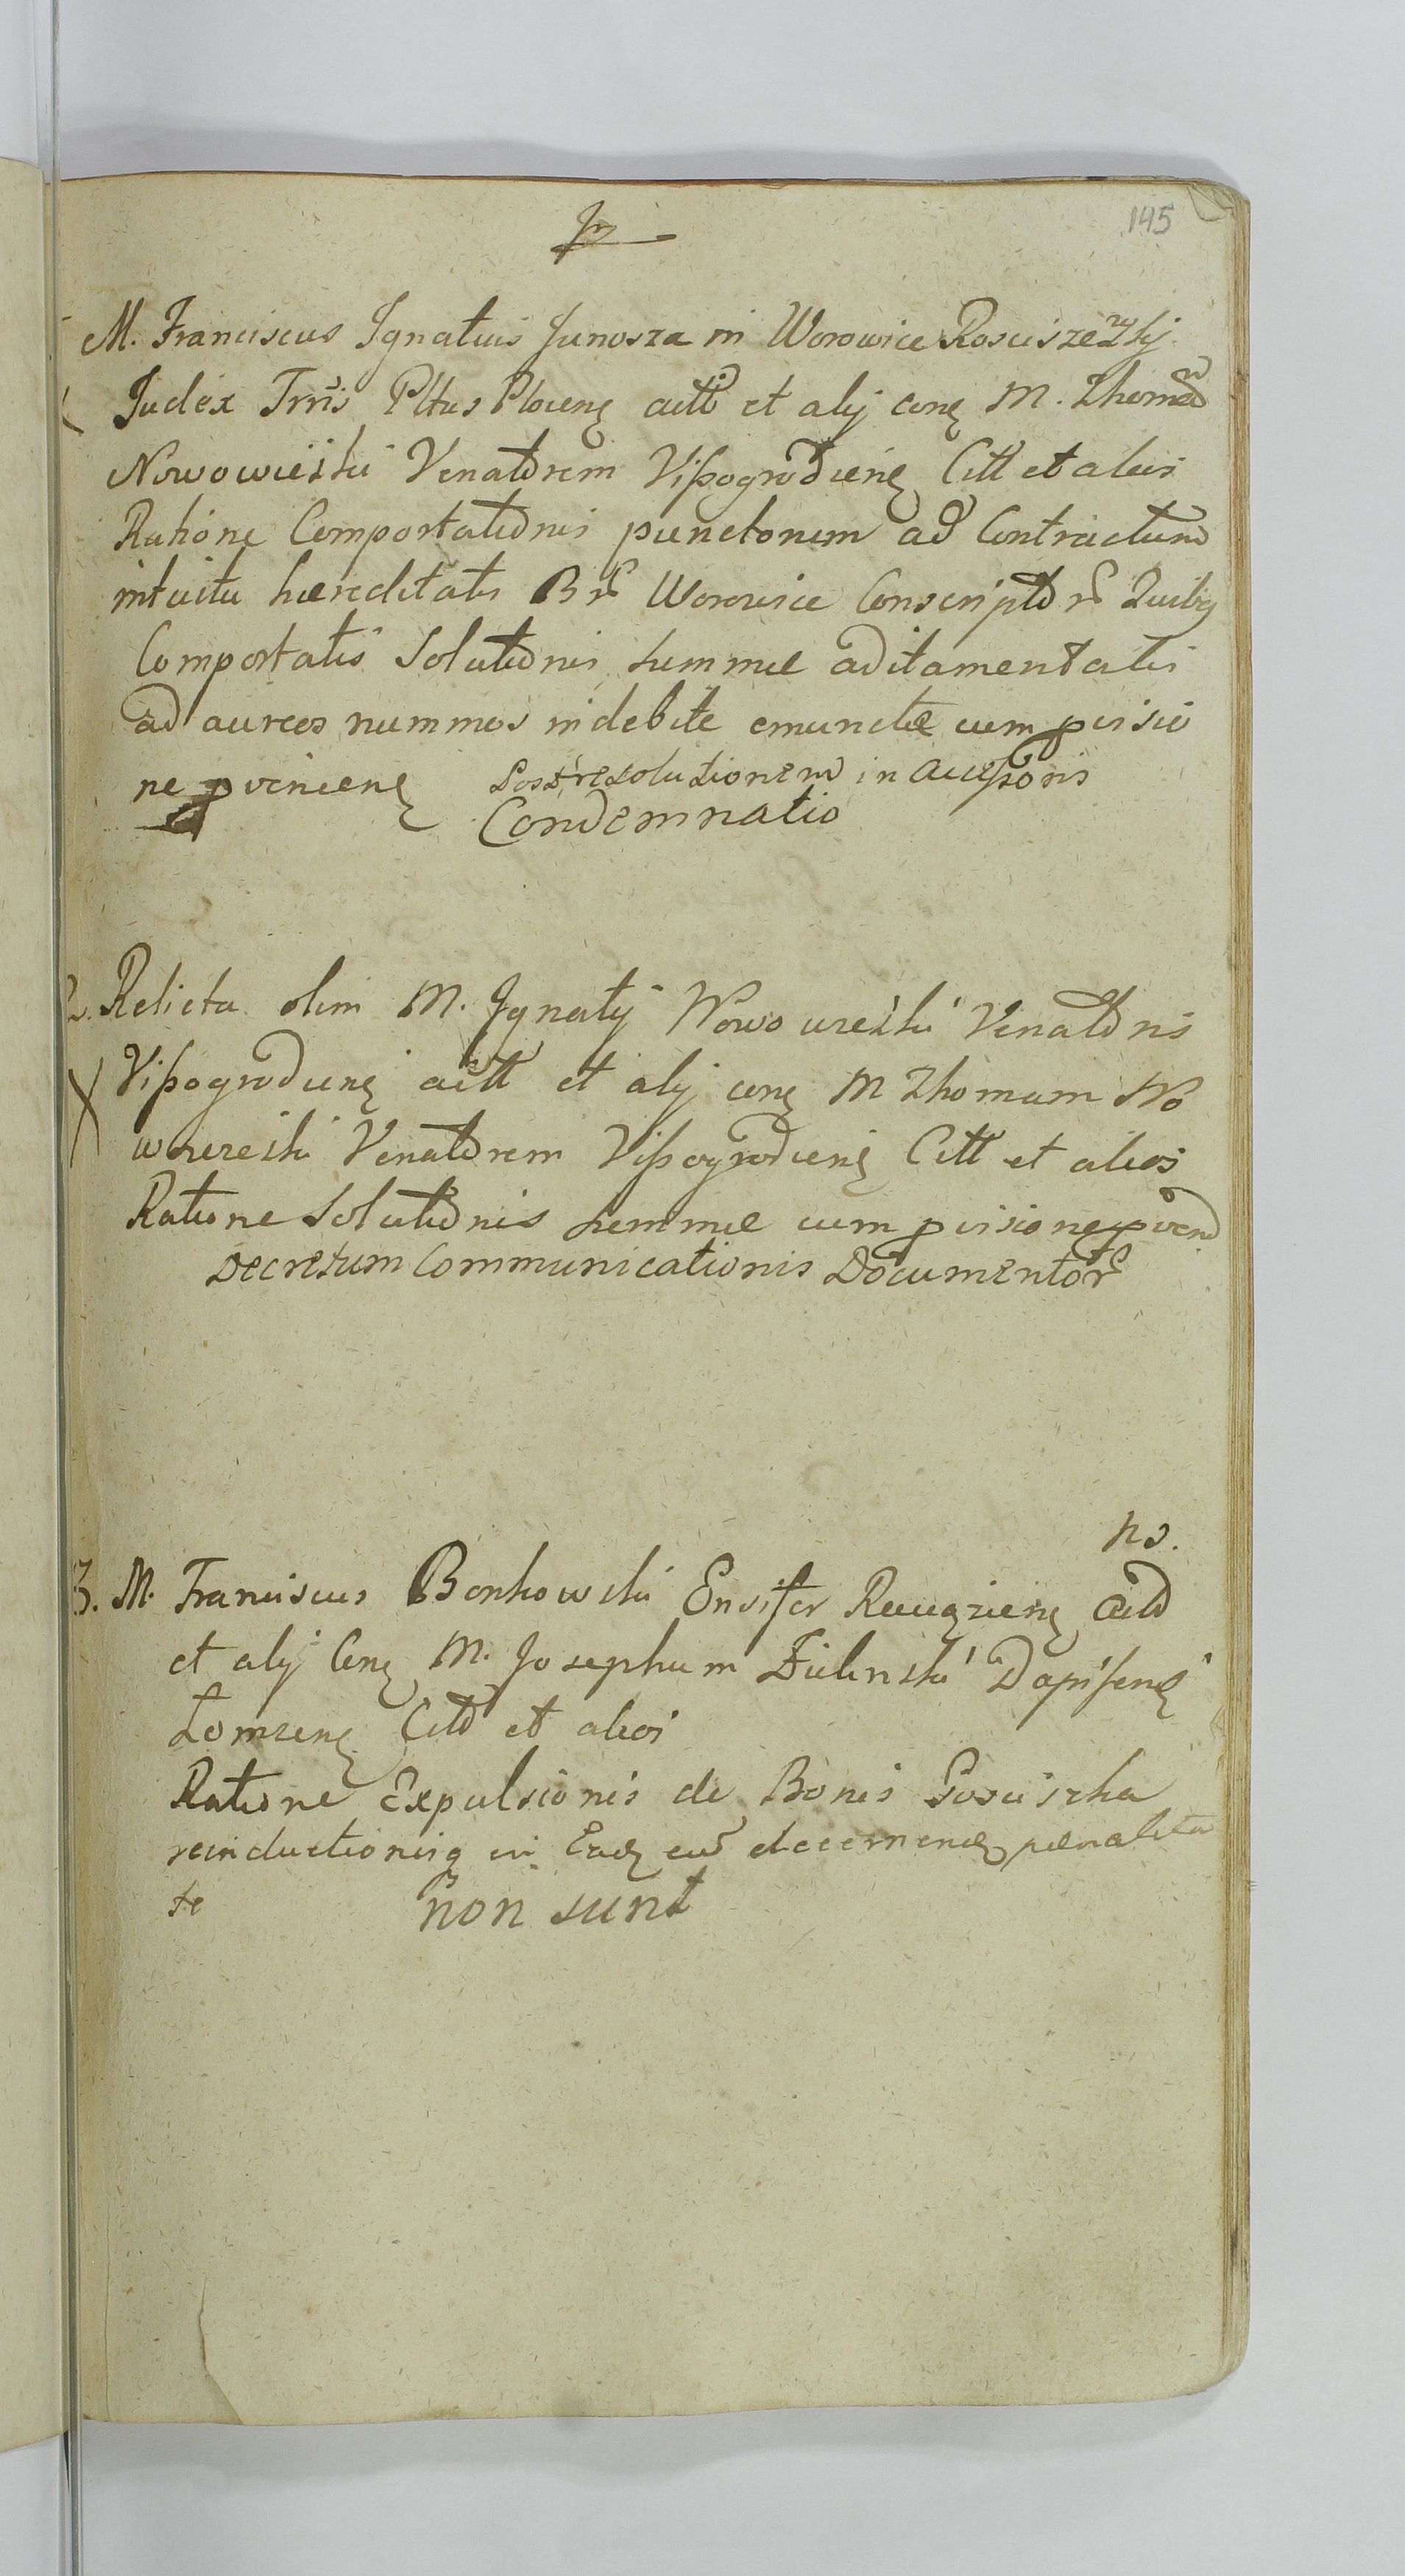 145
M. Franciscus Ignatius Junosza in Worowice Rosciszewskj
Judex Trris Pltus Plocens actt et alij cons M. Thomam
Nowowieiski Venatorem Vissogrodiens Citt et alios
Ratione Comportationis punctorum ad Contractum
intuitu haereditatis Br Worowice Conscriptor Quibus
Comportatis Solutionis Summae aditamentalis
ad aureos nummos indebite emunctae cum pvisio
ne pveniens Post resolutionem in accessoris
Condemnatio
2. Relicta olim M. Ignatij Nowowieiski Venatoris
Vissogrodiens actt et alij cons M Thomam No
wowieiski Venatorem Vissogrodiens Citt et alios
Ratione Solutionis Summae cum pvisione pven
Decretum Communicationis Documentor
ns.
3. M. Franciscus Bonkowski Ensifer Raciqziens act
et alij Cons M. Josephum Zielinski Dapiferu
Lomzens Citt et alios
Ratione Expulsionis de Bonis Gosciszka
reinductionisq in Eade cu decernens paenalita
te non sunt